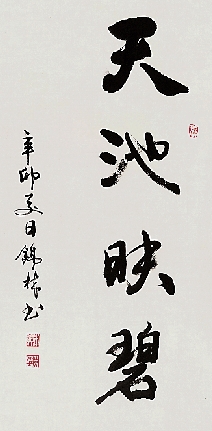 天池映碧
辛卯夏日锦梅书